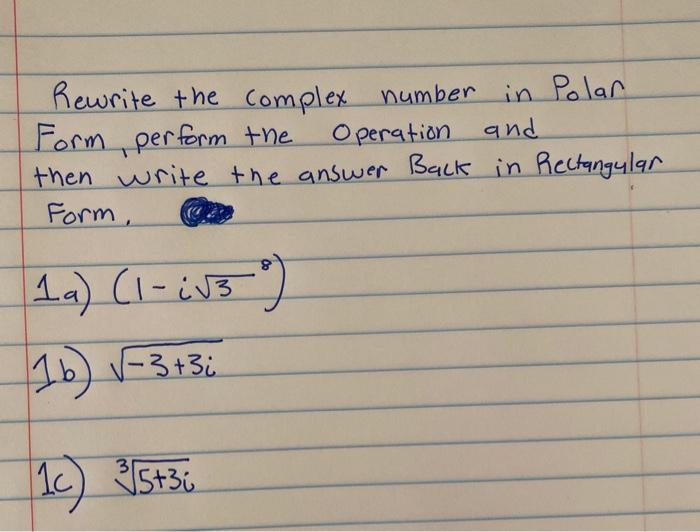 Rewrite the complex number in Polar
Form, perform the Operation and
then write the answer Back in Rectangular
Form.
1a) (1-i√3 ⁸)
1b) √-3+3i
1c) ³√5+3i